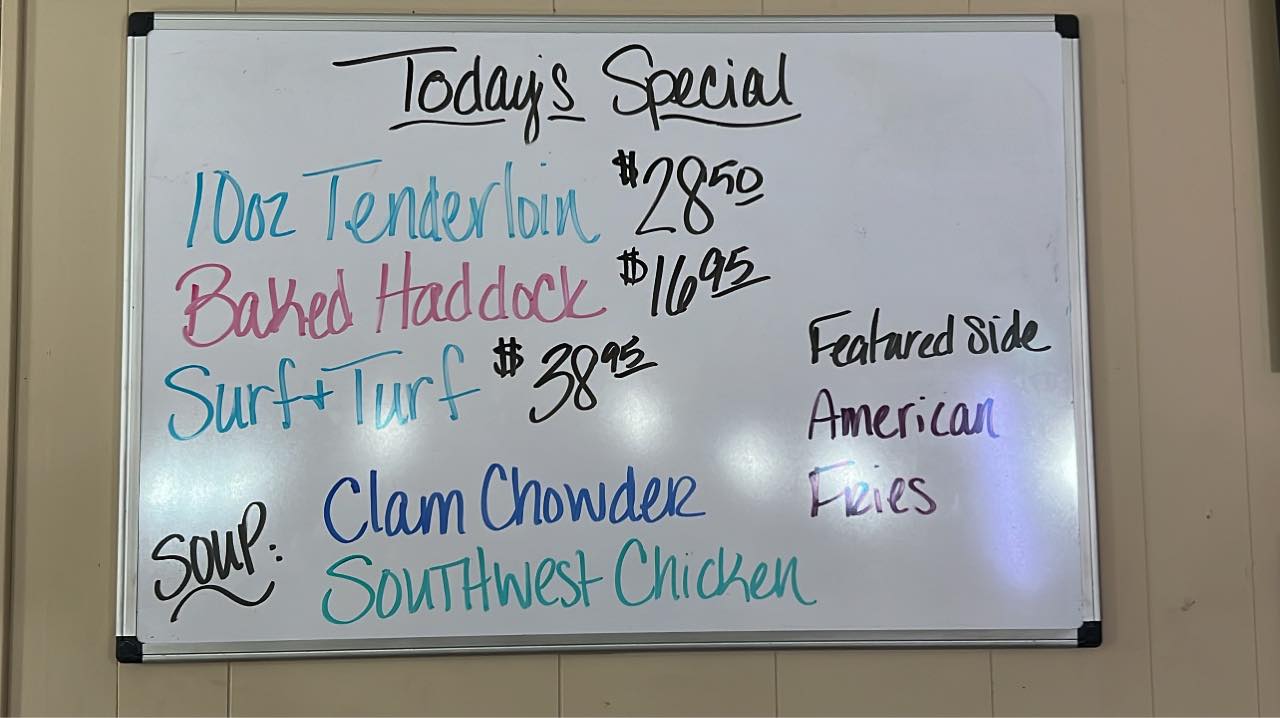 Today's Special
10oz Tenderloin $28.50
Baked Haddock $16.95
Surf + Turf $38.95
Featured Side
American
Fries
Soup: Clam Chowder
Southwest Chicken